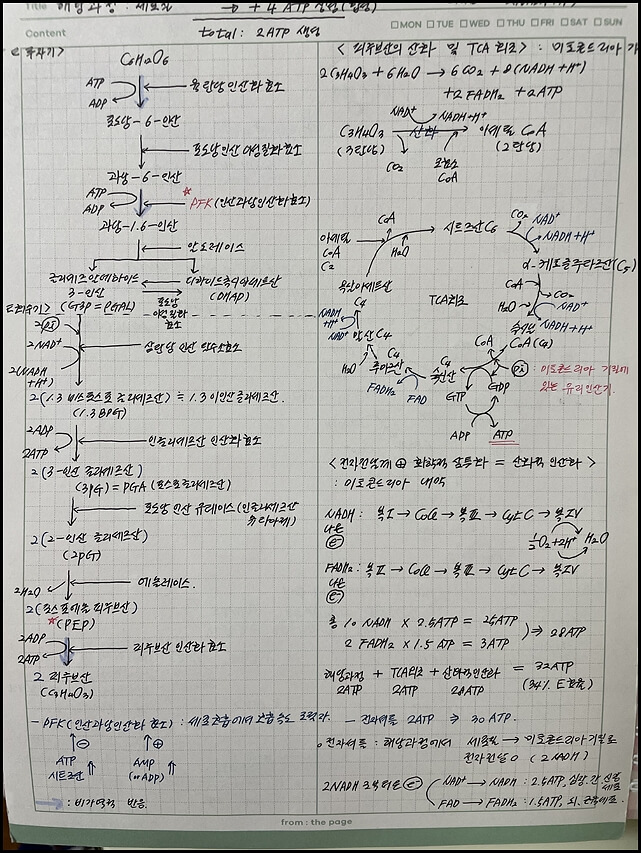 Title 해당과정 : 세포질 → + 4ATP 생성 (합성)
Content total : 2ATP 생성
□MON □TUE □WED □THU □FRI □SAT □SUN
C6H12O6
ATP
ADP
육탄당 인산화효소
포도당-6-인산
포도당인산 이성질화효소
과당-6-인산
ATP
ADP
* PFK (인산과당인산화효소)
과당-1.6-인산
알도레이스
글리세르알데하이드
3-인산
(G3P = PGAL)
(DHAP)
포도당
이성질화
효소
2Pi
2NAD+
2(NADH
+H+)
삼탄당 인산 탈수소효소
2(1.3 비스포스포 글리세르산) ≒ 1.3 이인산글리세르산.
(1.3 BPG)
2ADP
2ATP
인글리세르산 인산화효소
2(3-인산 글리세르산)
(3PG) = PGA (포스포글리세르산)
2(2-인산 글리세르산)
(2PG)
2H2O
에놀레이스.
2(포스포에놀 피루브산)
* (PEP)
2ADP
2ATP
피루브산 인산화 효소
2 피루브산
(C3H4O3)
- PFK(인산과당인산화 효소) : 세포호흡에서 호흡속도 조절자.
⊖ ⊕
ATP ↑ AMP ↑
시트르산 (or ADP)
→ : 비가역적 반응.
< 피루브산의 산화 및 TCA 회로 > : 미토콘드리아 기
2C3H4O3 + 6H2O → 6CO2 + 8(NADH + H+)
+2FADH2 + 2ATP
NAD+ NADH+H+
C3H4O3 산화 아세틸 CoA
(3탄당) (2탄당)
CO2 조효소
CoA
CoA 시트르산 C6 CO2 NAD+
NADH+H+
아세틸
CoA
C2
H2O
α-케토글루타르산(C5)
옥살아세트산
C4
TCA회로
CoA
CO2
H2O
NAD+
NADH+H+
NADH
+H+
NAD+
말산 C4
숙시닐
CoA(C4)
H2O
푸마르산
C4
FADH2 FAD
C4
숙신산
CoA
Pi : 미토콘드리아 기질에
있는 유리인산기.
GTP GDP
ADP ATP
< 전자전달계 ⊕ 화학적 삼투화 = 산화적 인산화 >
: 미토콘드리아 내막
NADH : 복Ⅰ → CoQ → 복Ⅲ → Cyt C → 복Ⅳ
나온
e-
½O2+2H+ H2O
FADH2 : 복Ⅱ → CoQ → 복Ⅲ → Cyt C → 복Ⅳ
나온
e-
총 10 NADH × 2.5ATP = 25ATP
2 FADH2 × 1.5 ATP = 3ATP
⇒ 28ATP
해당과정 + TCA회로 + 산화적인산화 = 32ATP
2ATP 2ATP 28ATP (34% E효율)
- 전자셔틀 2ATP ⇒ 30 ATP.
전자셔틀 : 해당과정에서 세포질 → 미토콘드리아기질로
전자전달 (2NADH)
2NADH e-
NAD+ → NADH : 2.5ATP, 심장, 간, 신장
세포
FAD → FADH2 : 1.5ATP, 뇌, 근육세포.
from : the page